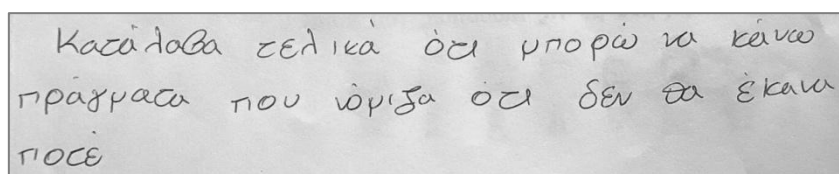 Κατάλαβα τελικά ότι μπορώ να κάνω
πράγματα που νόμιζα ότι δεν θα έκανα
ποτέ